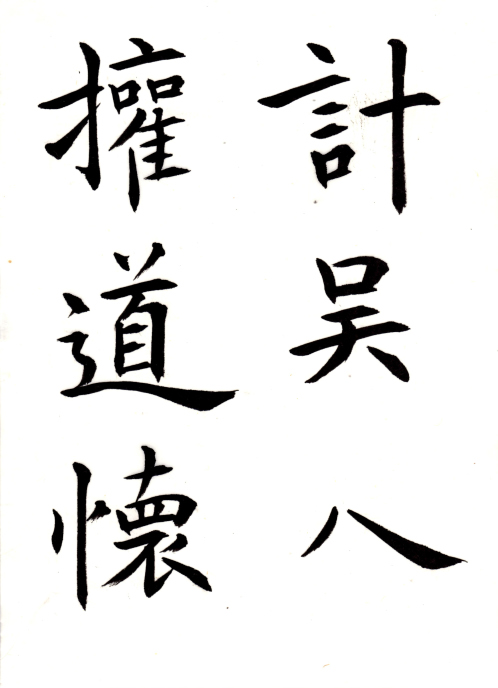 計吴八
擁道懷